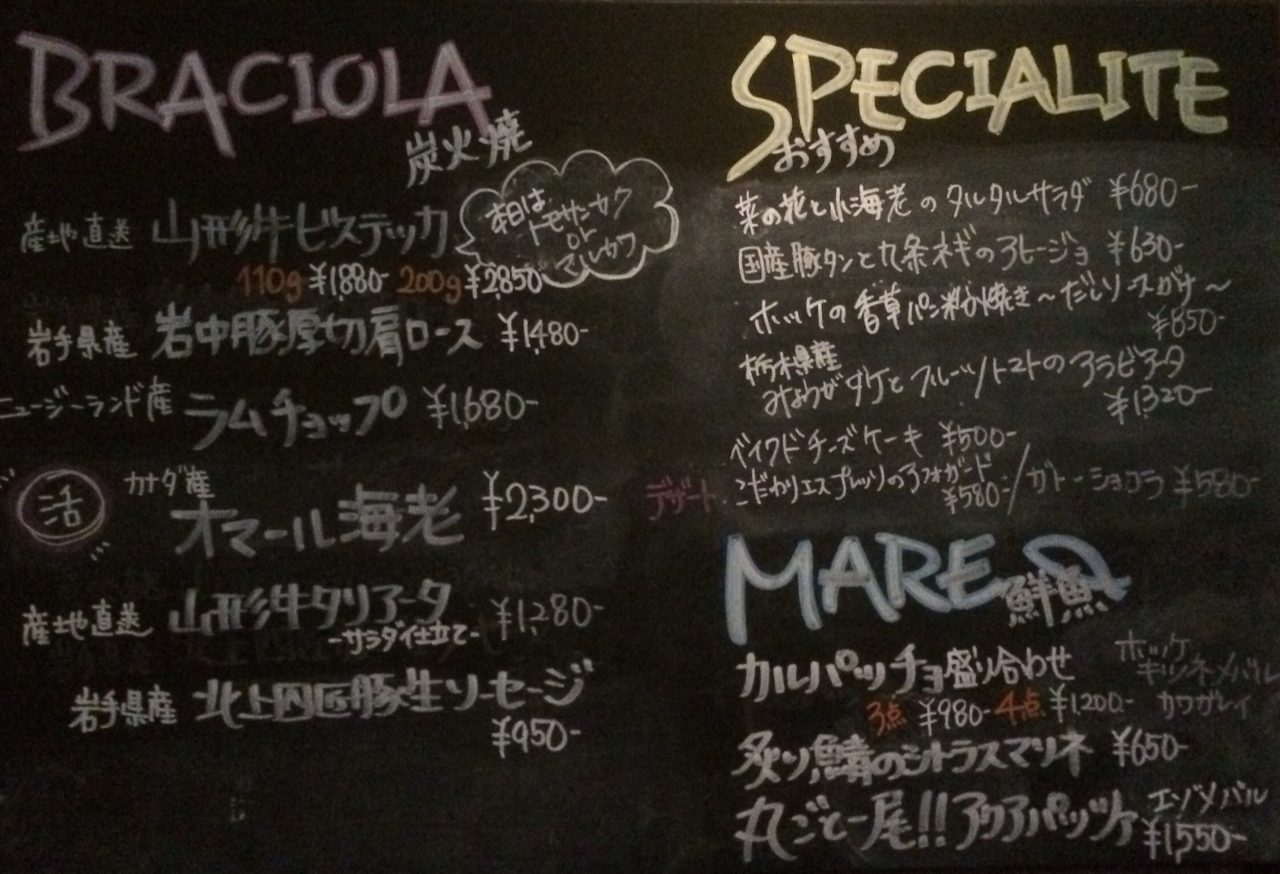 BRACIOLA
炭火焼
産地直送 山形牛ビステッカ
本日は
トモサンカク
or
マルカワ
110g ¥1,880- 200g ¥2,850-
岩手県産 岩中豚厚切肩ロース ¥1,480-
ニュージーランド産 ラムチョップ ¥1,680-
活 カナダ産
オマール海老 ¥2,300-
産地直送 山形牛タリアータ ¥1,280-
-サラダ仕立て-
岩手県産 北上四匠豚生ソーセージ
¥950-
SPECIALITE
おすすめ
菜の花と小海老のタルタルサラダ ¥680-
国産豚タンと九条ネギのアレージョ ¥630-
ホッケの香草パン粉焼き～だしソースガケ～
¥850-
栃木県産
みょうがダケとフルーツトマトのアラビアータ
¥1,320-
ベイクドチーズケーキ ¥500-
デザート こだわりエスプレッソのアフォガード
¥580-/ガトーショコラ ¥580-
MARE
鮮魚
カルパッチョ盛り合わせ
ホッケ
キツネメバル
カワガレイ
3点 ¥980- 4点 ¥1,200-
炙り鯖のシトラスマリネ ¥650-
丸ごと一尾!!アクアパッツァ エゾメバル
¥1,550-